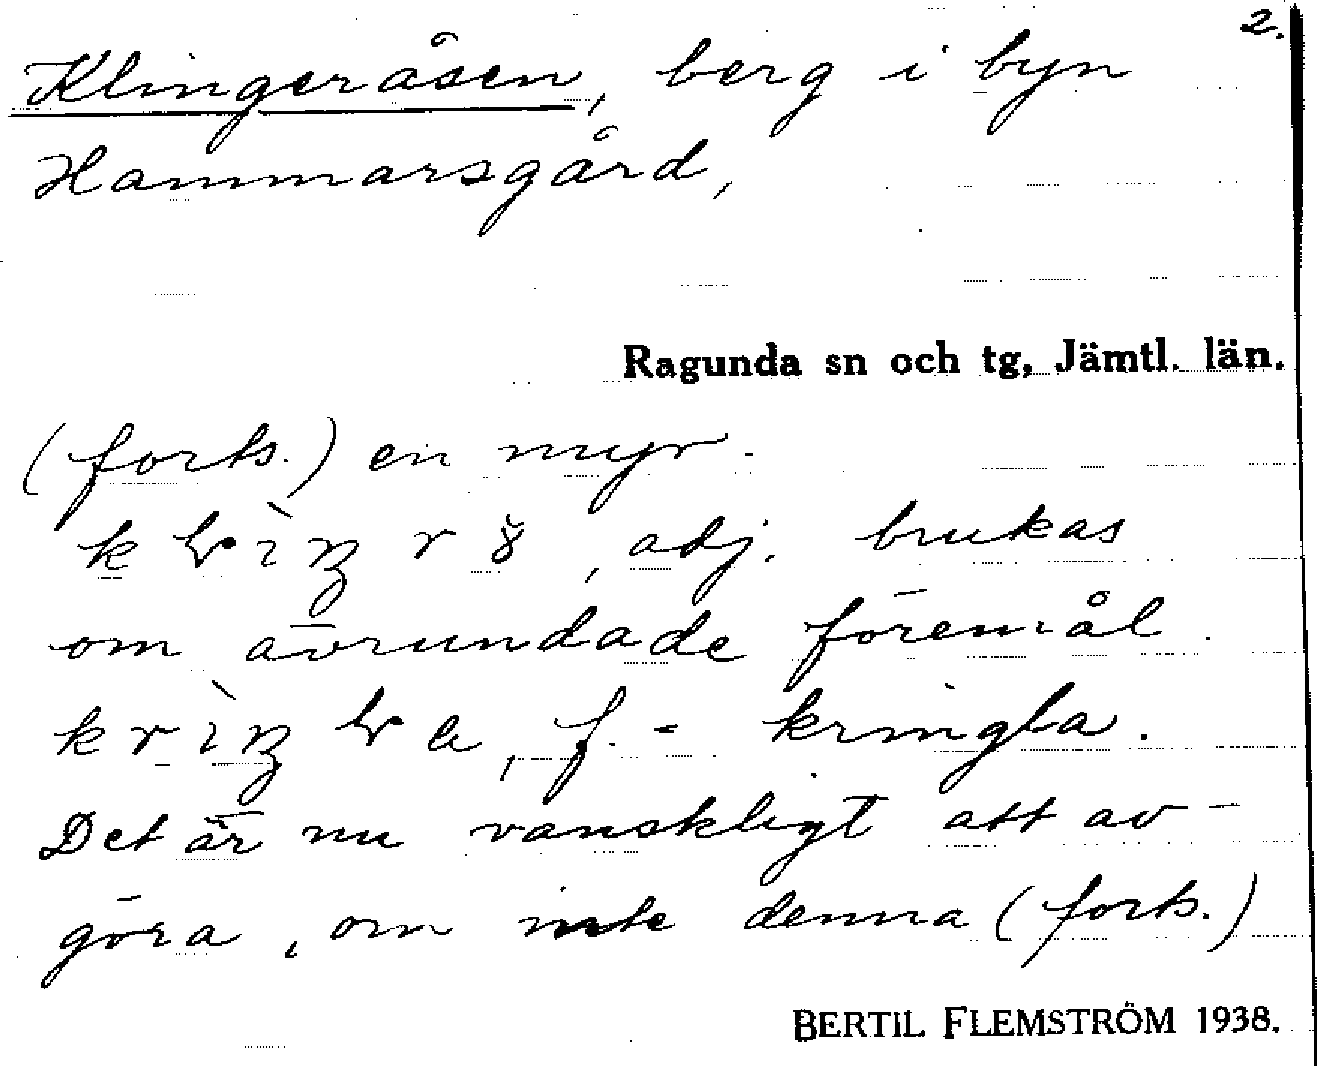 2.
Klingeråsen, berg i byn
Hammarsgård,
Ragunda sn och tg, Jämtl. län.
(forts.) en myr.
, adj. brukas
om avrundade föremål.
, f. = kringla.
Det är nu vanskligt att av-
göra, om inte denna (forts.)
BERTIL FLEMSTRÖM 1938.